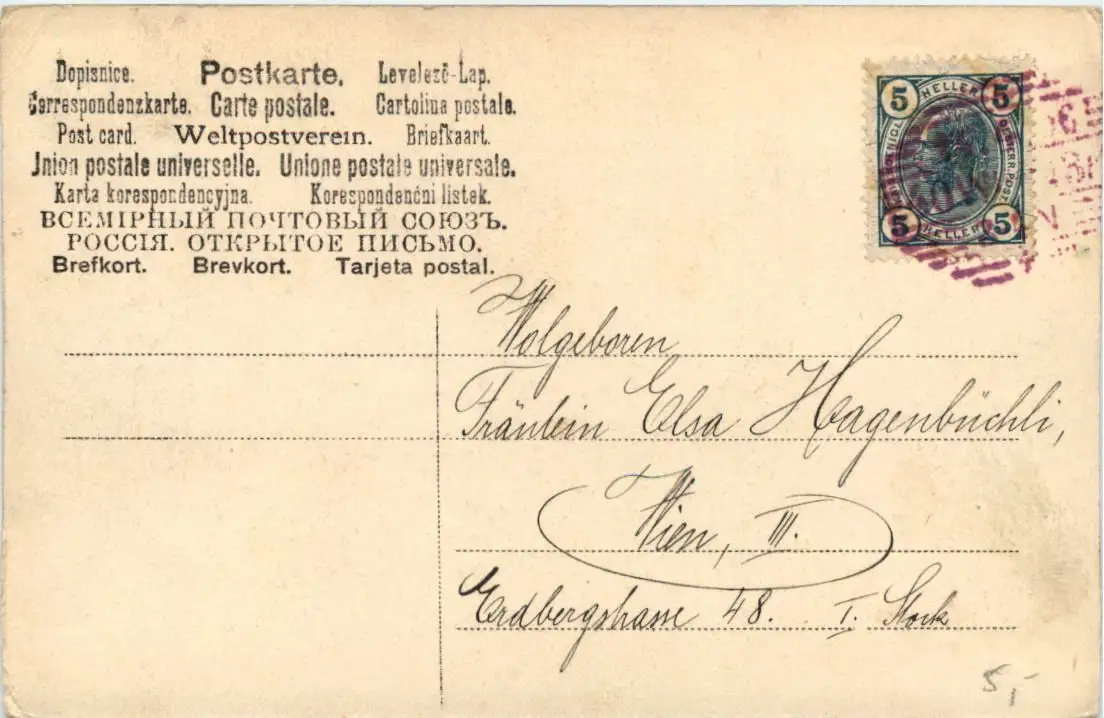 Dopisnice. Postkarte. Levelező-Lap.
Correspondenzkarte. Carte postale. Cartolina postale.
Post card. Weltpostverein. Briefkaart.
Union postale universelle. Unione postale universale.
Karta korespondencyjna. Korespondenčni listek.
ВСЕМІРНЫЙ ПОЧТОВЫЙ СОЮЗЪ.
РОССІЯ. ОТКРЫТОЕ ПИСЬМО.
Brefkort. Brevkort. Tarjeta postal.
5 HELLER 5
5 HELLER 5
Wolgeboren
Fräulein Elsa Hagenbüchli,
Wien, III.
Erdbergstrasse 48. I. Stock
5,-